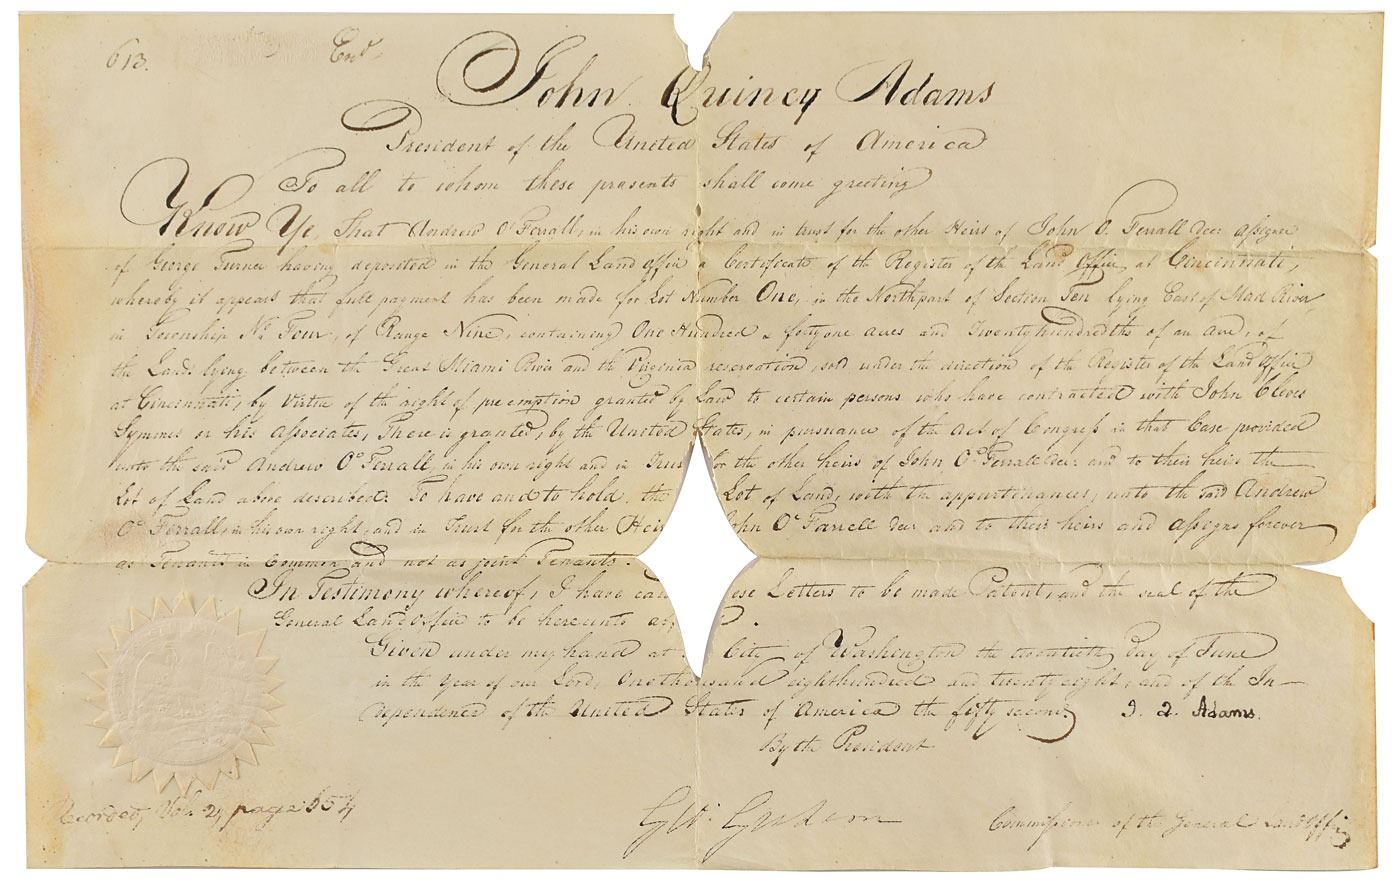 613.
End
John Quincy Adams
President of the United States of America
To all to whom these presents shall come greeting
Know Ye, That Andrew O'Ferrall, in his own right and in trust for the other Heirs of John O. Ferrall decr assignee
of George Turner having deposited in the General Land office a Certificate of the Register of the Land Office, at Cincinnati,
whereby it appears that full payment has been made for Lot Number One, in the North part of Section Ten lying East of Mad River,
in Township No. Four, of Range Nine, containing One Hundred & forty one acres and Twenty hundredths of an acre, of
the Land lying between the Great Miami River and the Virginia reservation, sold under the direction of the Register of the Land Office
at Cincinnati, by Virtue of the right of pre emption granted by Law to certain persons who have contracted with John Cleves
Symmes or his associates, There is granted, by the United States, in pursuance of the Act of Congress in that Case provided
unto the said Andrew O'Ferrall, in his own right and in Trus for the other heirs of John O'Ferrall decr and to their heirs the
Lot of Land above described: To have and to hold, the Lot of Land, with the appurtenances, unto the said Andrew
O'Ferrall, in his own right, and in Trust for the other Heir John O'Farrell decr and to their heirs and assigns forever
as Tenants in Common and not as joint Tenants.
In Testimony whereof, I have cau ese Letters to be made Patent, and the seal of the
General Land Office to be hereunto
Given under my hand at City of Washington the twentieth day of June
in the Year of our Lord, One thousand eight hundred and twenty eight, and of the In-
dependence of the United States of America the fifty second J. Q. Adams.
By the President
Geo. Graham Commissioner of the General Land Office
Recorded, Vol. 2, page 354